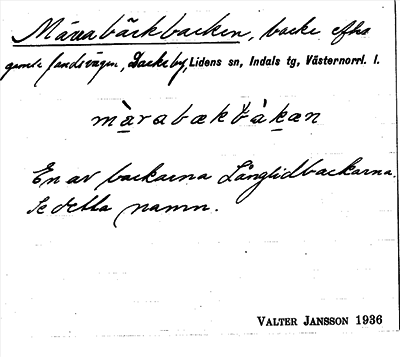 Märrabäckbacken, backe efter
gamla landsvägen, Backe by, Lidens sn, Indals tg, Västernorrl. l.
màrabækbàkæn
En av backarna Långlidbackarna.
Se detta namn.
VALTER JANSSON 1936